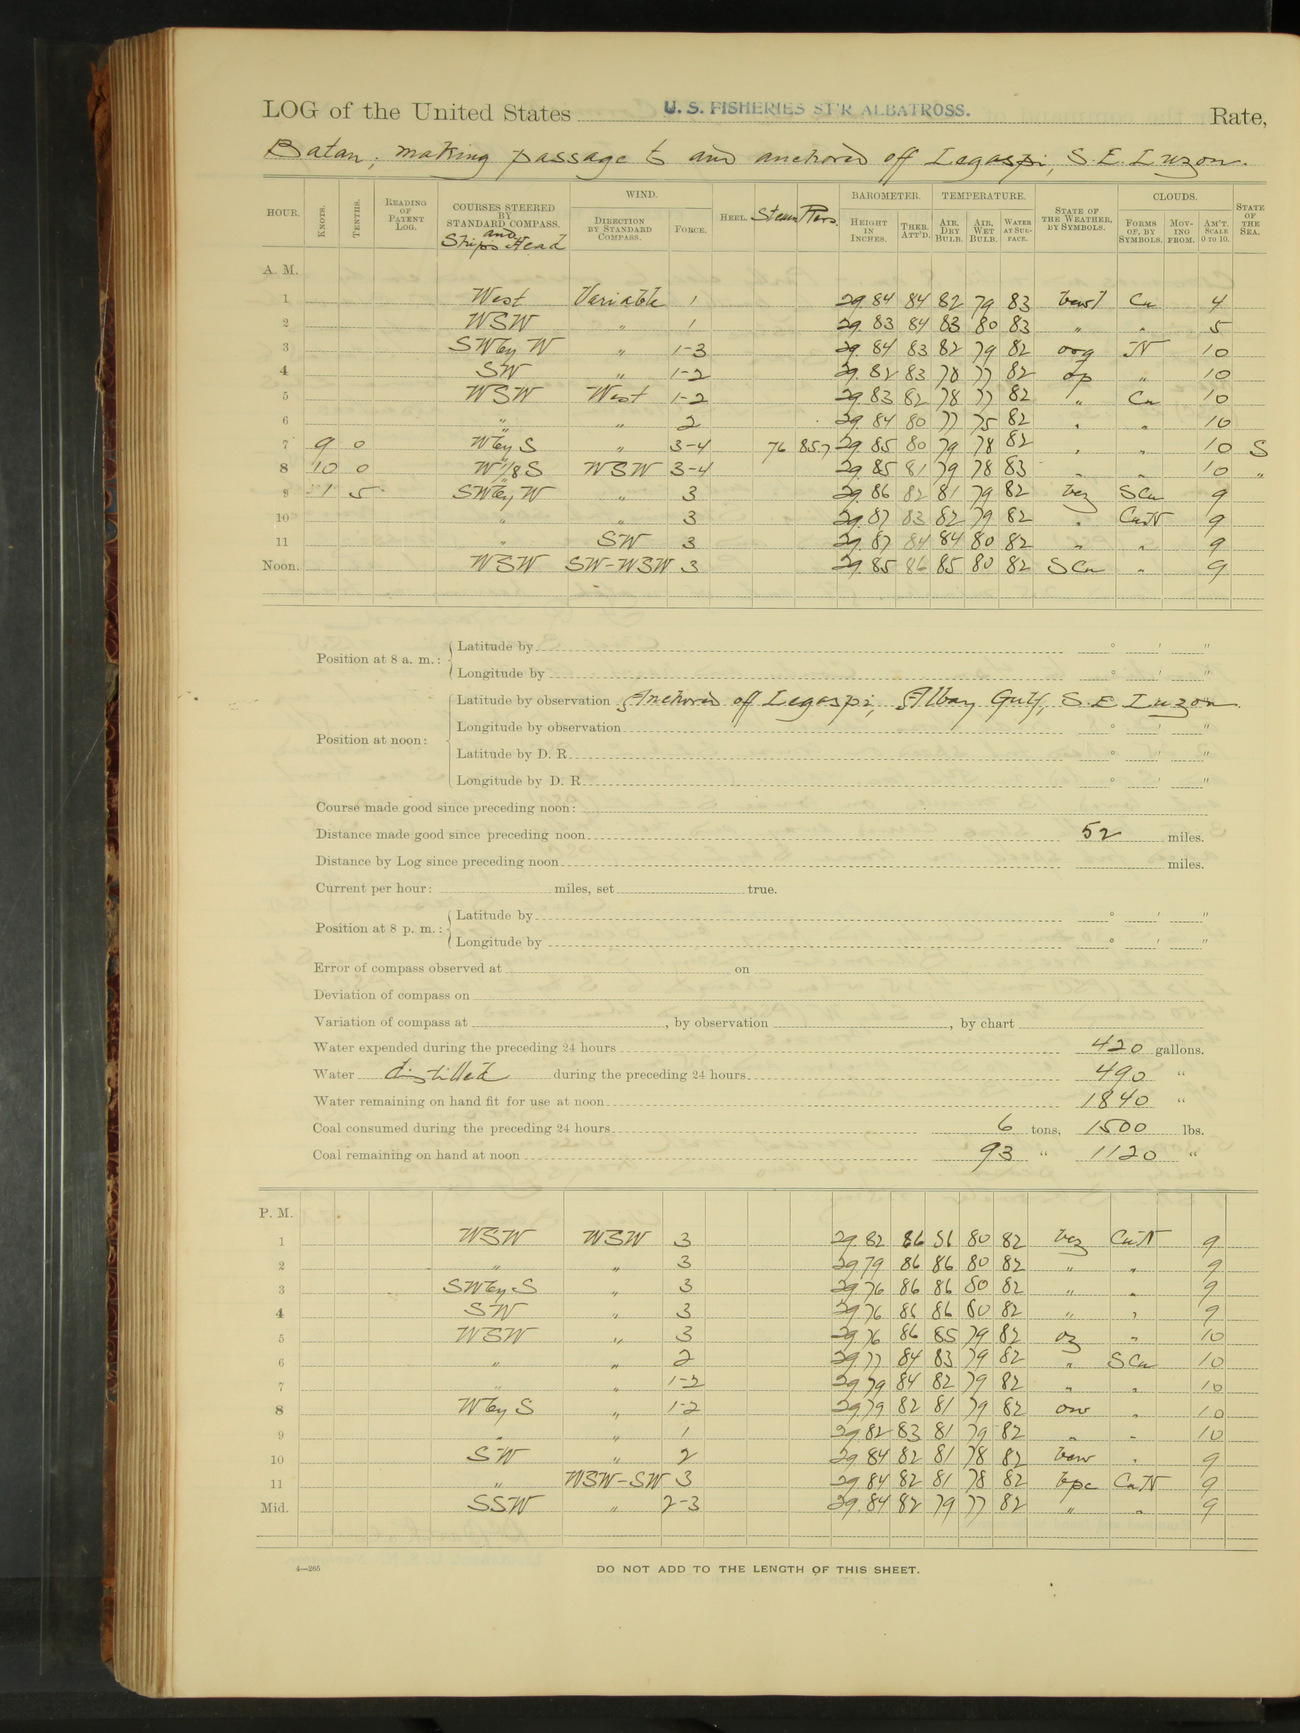 LOG of the United States U. S. FISHERIES ST'R ALBATROSS. Rate,
Batan, making passage to and anchored off Legaspi, S. E. Luzon.
HOUR. KNOTS. TENTHS. READING OF PATENT LOG. COURSES STEERED BY STANDARD COMPASS. and Ships Head WIND. DIRECTION BY STANDARD COMPASS. FORCE. HEEL. Steam Revs. BAROMETER. HEIGHT IN INCHES. THER. ATT'D. TEMPERATURE. AIR, DRY BULB. AIR, WET BULB. WATER AT SURFACE. STATE OF THE WEATHER, BY SYMBOLS. CLOUDS. FORMS OF, BY SYMBOLS. MOVING FROM. AM'T. SCALE 0 TO 10. STATE OF THE SEA.
A. M.
1 West Variable 1 29.84 84 82 79 83 Cu 4
2 WSW " 1 29.83 84 83 80 83 " " 5
3 SW by W " 1-3 29.84 83 82 79 82 orq N 10
4 SW " 1-2 29.82 83 78 77 82 op " 10
5 WSW West 1-2 29.83 82 78 77 82 " Cu 10
6 " " 2 29.84 80 77 75 82 " " 10
7 9 0 W by S " 3-4 76 85.7 29.85 80 79 78 82 " " 10 S
8 10 0 W 7/8 S WSW 3-4 29.85 81 79 78 83 " " 10 "
9 1 5 SW by W " 3 29.86 82 81 79 82 bcz SCu 9
10 " " 3 29.87 83 82 79 82 " CuN 9
11 " SW 3 29.87 84 84 80 82 " " 9
Noon. WSW SW-WSW 3 29.85 86 85 80 82 SCu " 9
Position at 8 a. m.: Latitude by ° ' "
Longitude by ° ' "
Position at noon: Latitude by observation Anchored off Legaspi, Albay Gulf, S. E. Luzon.
Longitude by observation ° ' "
Latitude by D. R. ° ' "
Longitude by D. R. ° ' "
Course made good since preceding noon:
Distance made good since preceding noon 52 miles.
Distance by Log since preceding noon miles.
Current per hour: miles, set true.
Position at 8 p. m.: Latitude by ° ' "
Longitude by ° ' "
Error of compass observed at on
Deviation of compass on
Variation of compass at , by observation , by chart
Water expended during the preceding 24 hours 420 gallons.
Water distilled during the preceding 24 hours 490 "
Water remaining on hand fit for use at noon 1840 "
Coal consumed during the preceding 24 hours 6 tons, 1500 lbs.
Coal remaining on hand at noon 93 " 1120 "
P. M.
1 WSW WSW 3 29.82 86 80 82 bcz CuN 9
2 " " 3 29.79 86 86 80 82 " " 9
3 SW by S " 3 29.76 86 86 80 82 " " 9
4 SW " 3 29.76 86 86 80 82 " " 9
5 WSW " 3 29.76 86 85 79 82 oz " 10
6 " " 2 29.77 84 83 79 82 " SCu 10
7 " " 1-2 29.79 84 82 79 82 " " 10
8 W by S " 1-2 29.79 82 81 79 82 ow " 10
9 " " 1 29.82 83 81 79 82 " " 10
10 SW " 2 29.84 82 81 78 82 bcw " 9
11 " WSW-SW 3 29.84 82 81 78 82 bpc CuN 9
Mid. SSW " 2-3 29.84 82 79 77 82 " " 9
4—265
DO NOT ADD TO THE LENGTH OF THIS SHEET.